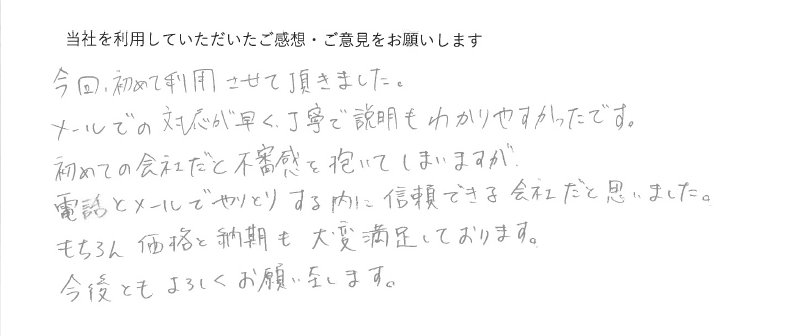 当社を利用していただいたご感想・ご意見をお願いします
今回、初めて利用させて頂きました。
メールでの対応が早く、丁寧で説明もわかりやすかったです。
初めての会社だと不審感を抱いてしまいますが、
電話とメールでやりとりする内に信頼できる会社だと思いました。
もちろん価格と納期も大変満足しております。
今後ともよろしくお願い致します。